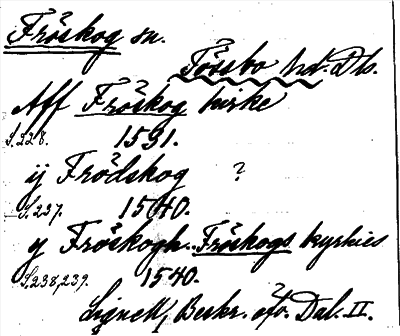 Fröskog sn.
Tössbo hd. Dls.
Aff Fröskog kirke
S. 228. 1591.
ij Frödskog ?
S. 237. 1540.
y Fröskogh. Fröskogs kyrkies
S. 238, 239. 1540.
Lignell, Beskr. öfv. Dal. II.